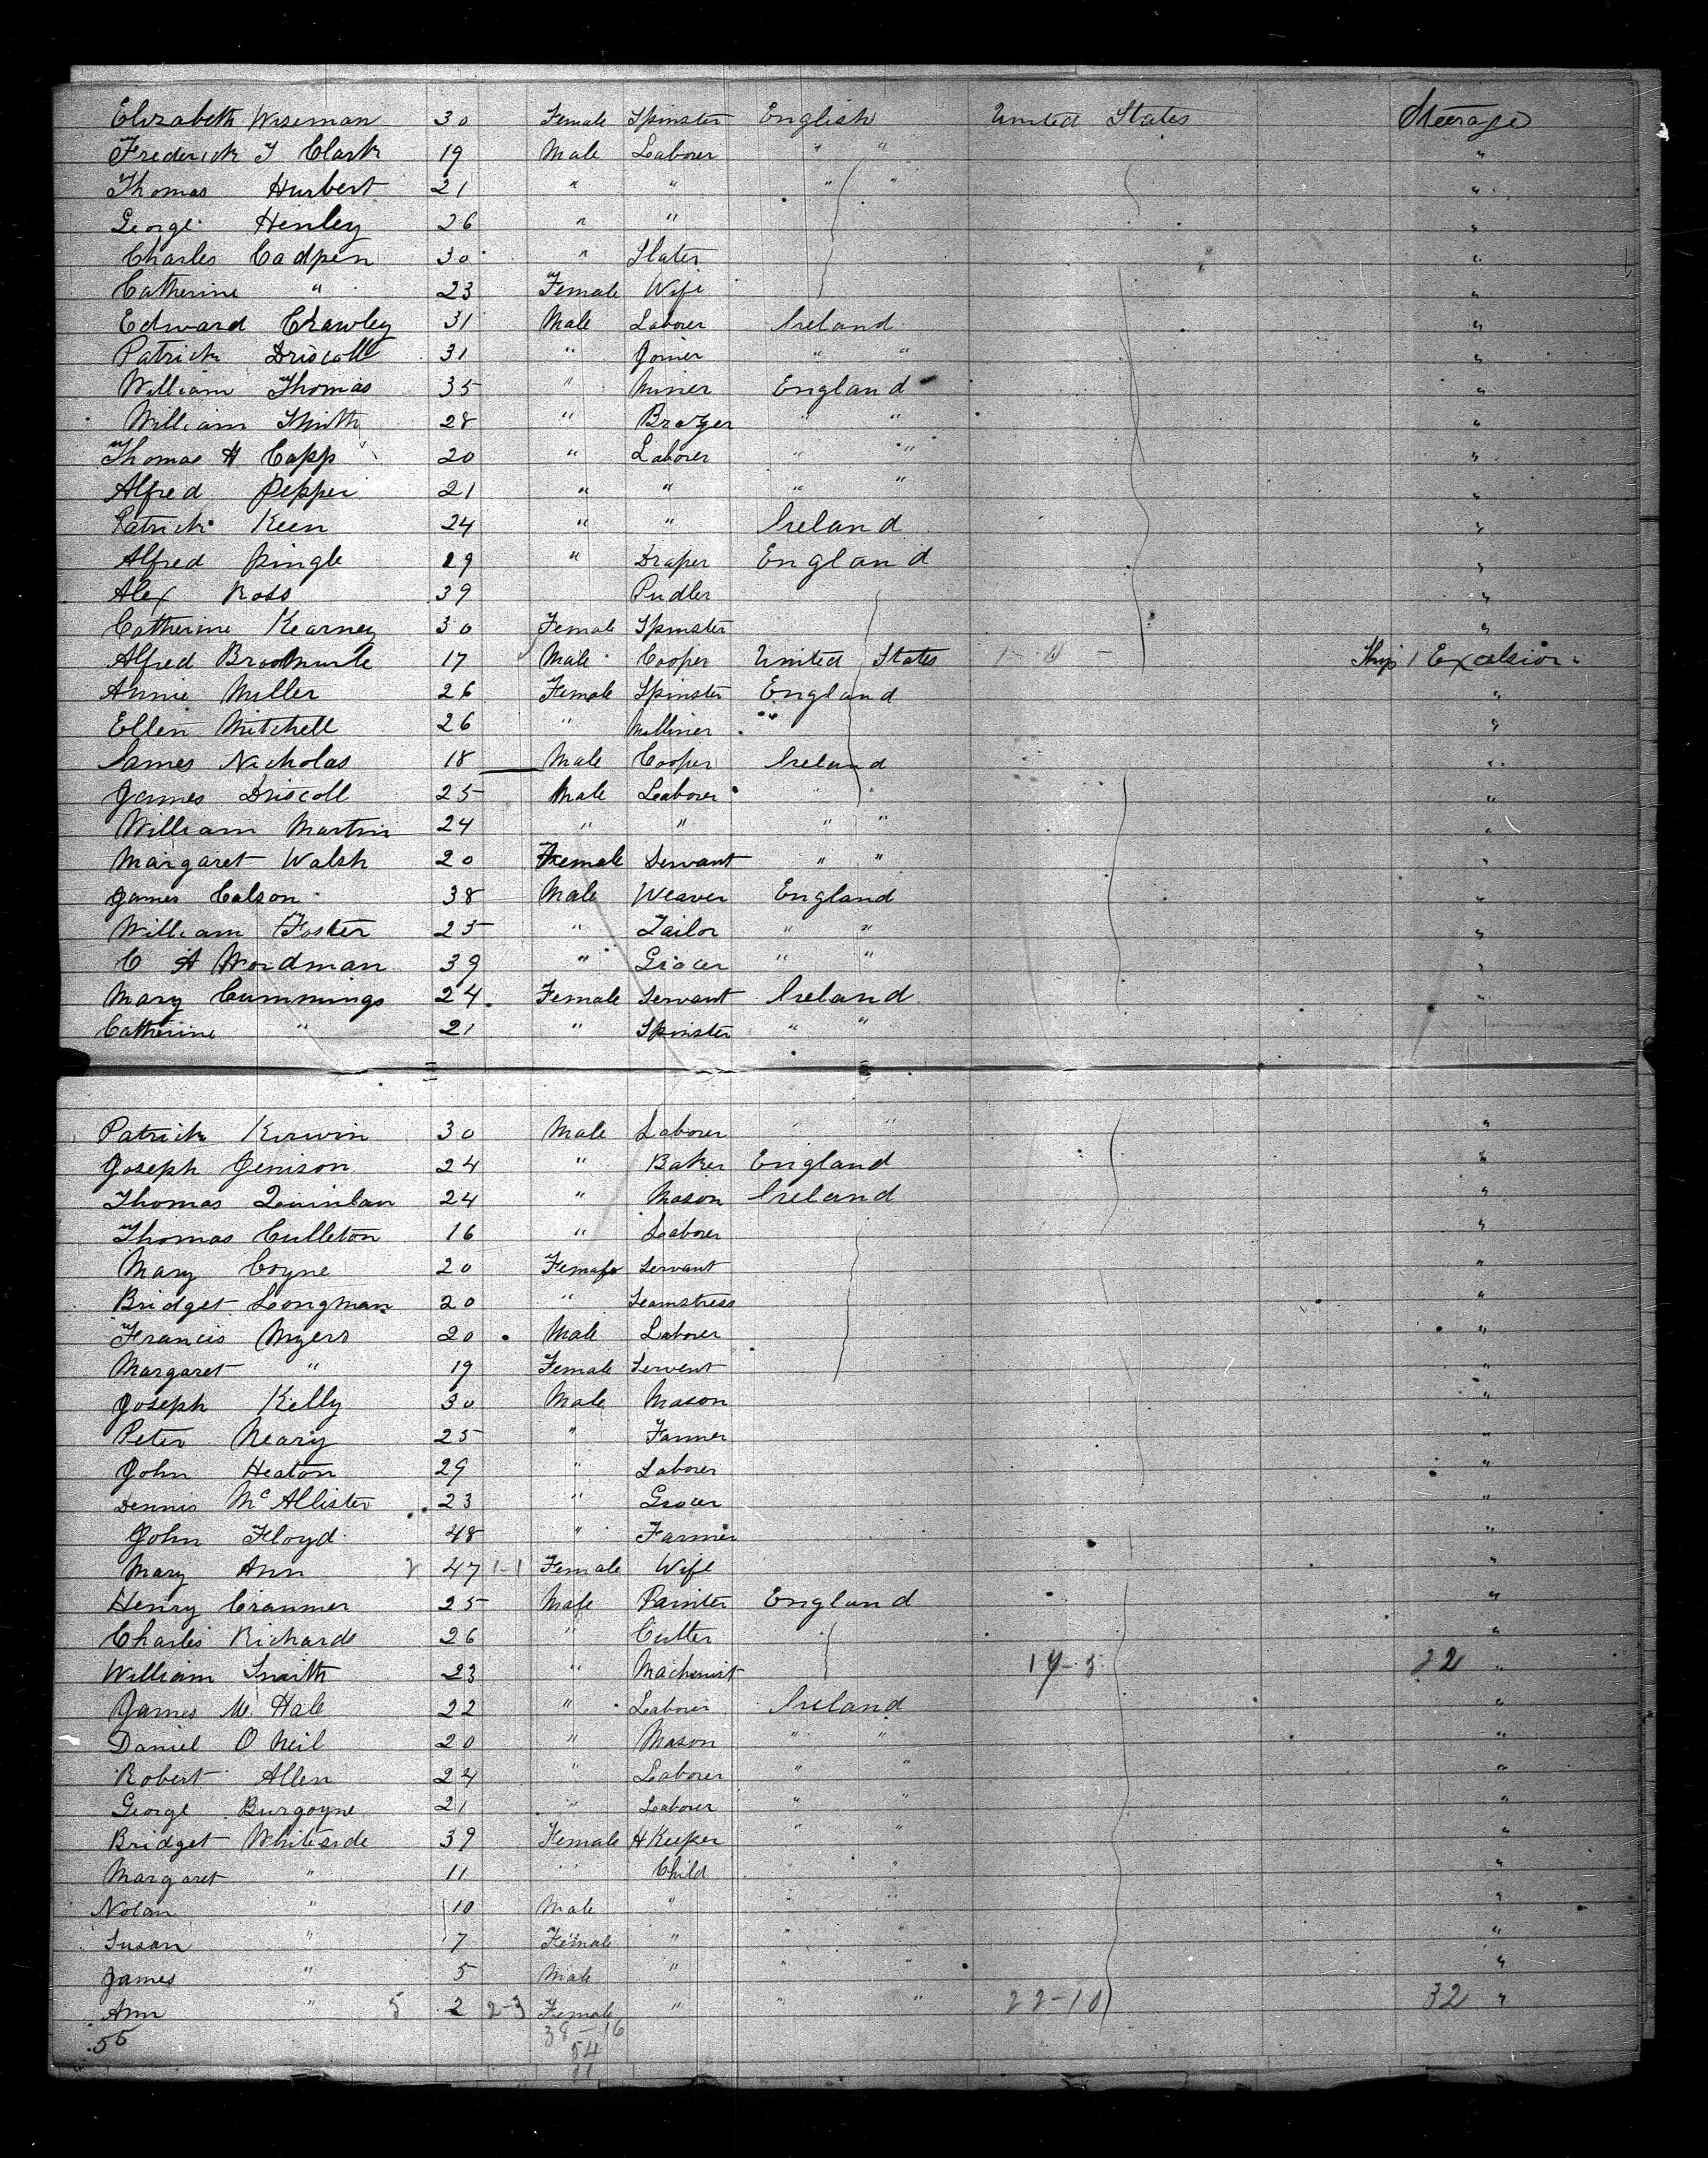 Elizabeth Wiseman 30 Female Spinster English United States Steerage
Frederick J Clark 19 Male Laborer " " "
Thomas Hurbert 21 " " " " "
George Henley 26 " " "
Charles Cadpen 30 " Slater "
Catherine " 23 Female Wife "
Edward Crawley 31 Male Laborer Ireland "
Patrick Driscoll 31 " Joiner " " "
William Thomas 35 " Miner England "
William Smith 28 " Brazer " " "
Thomas H Capp 20 " Laborer " " "
Alfred Pepper 21 " " " " "
Patrick Keen 24 " " Ireland "
Alfred Pingle 29 " Draper England "
Alex Ross 39 Pudler "
Catherine Kearney 30 Female Spinster "
Alfred 17 Male Cooper United States Ship Excelsior
Annie Miller 26 Female Spinster England "
Ellen Mitchell 26 " Milliner " "
James Nicholas 18 Male Cooper Ireland "
James Driscoll 25 Male Laborer " " "
William Martin 24 " " " " "
Margaret Walsh 20 Female Servant " " "
James Colson 38 Male Weaver England "
William Foster 25 " Tailor " " "
C A Woodman 39 " Grocer " " "
Mary Cummings 24 Female Servant Ireland "
Catherine " 21 " Spinster " "
Patrick Kerwin 30 Male Laborer " " "
Joseph Jenison 24 " Baker England "
Thomas Quinlan 24 " Mason Ireland "
Thomas Culleton 16 " Laborer "
Mary Coyne 20 Female Servant "
Bridget Longman 20 " Seamstress "
Francis Myers 20 Male Laborer "
Margaret " 19 Female Servent "
Joseph Kelly 30 Male Mason "
Peter Neary 25 " Farmer "
John Heaton 29 " Laborer "
Dennis McAllister 23 " Grocer "
John Floyd 48 " Farmer "
Mary Ann 2 47 1-1 Female Wife "
Henry Cranmer 25 Male Painter England "
Charles Richards 26 " Cutter "
William Smith 23 " Machinist 22 "
James Mc Hale 22 " Laborer Ireland "
Daniel O Neil 20 " Mason " " "
Robert Allen 24 " Laborer " " "
George Burgoyne 21 " Laborer " " "
Bridget Whiteside 39 Female H Keeper " " "
Margaret " 11 " Child " " "
Nolan " 10 Male " " " "
Susan " 7 Female " " " "
James " 5 Male " " " "
Ann " 5 2 2-3 Female " " " 22-10 32 "
55 38-16
54